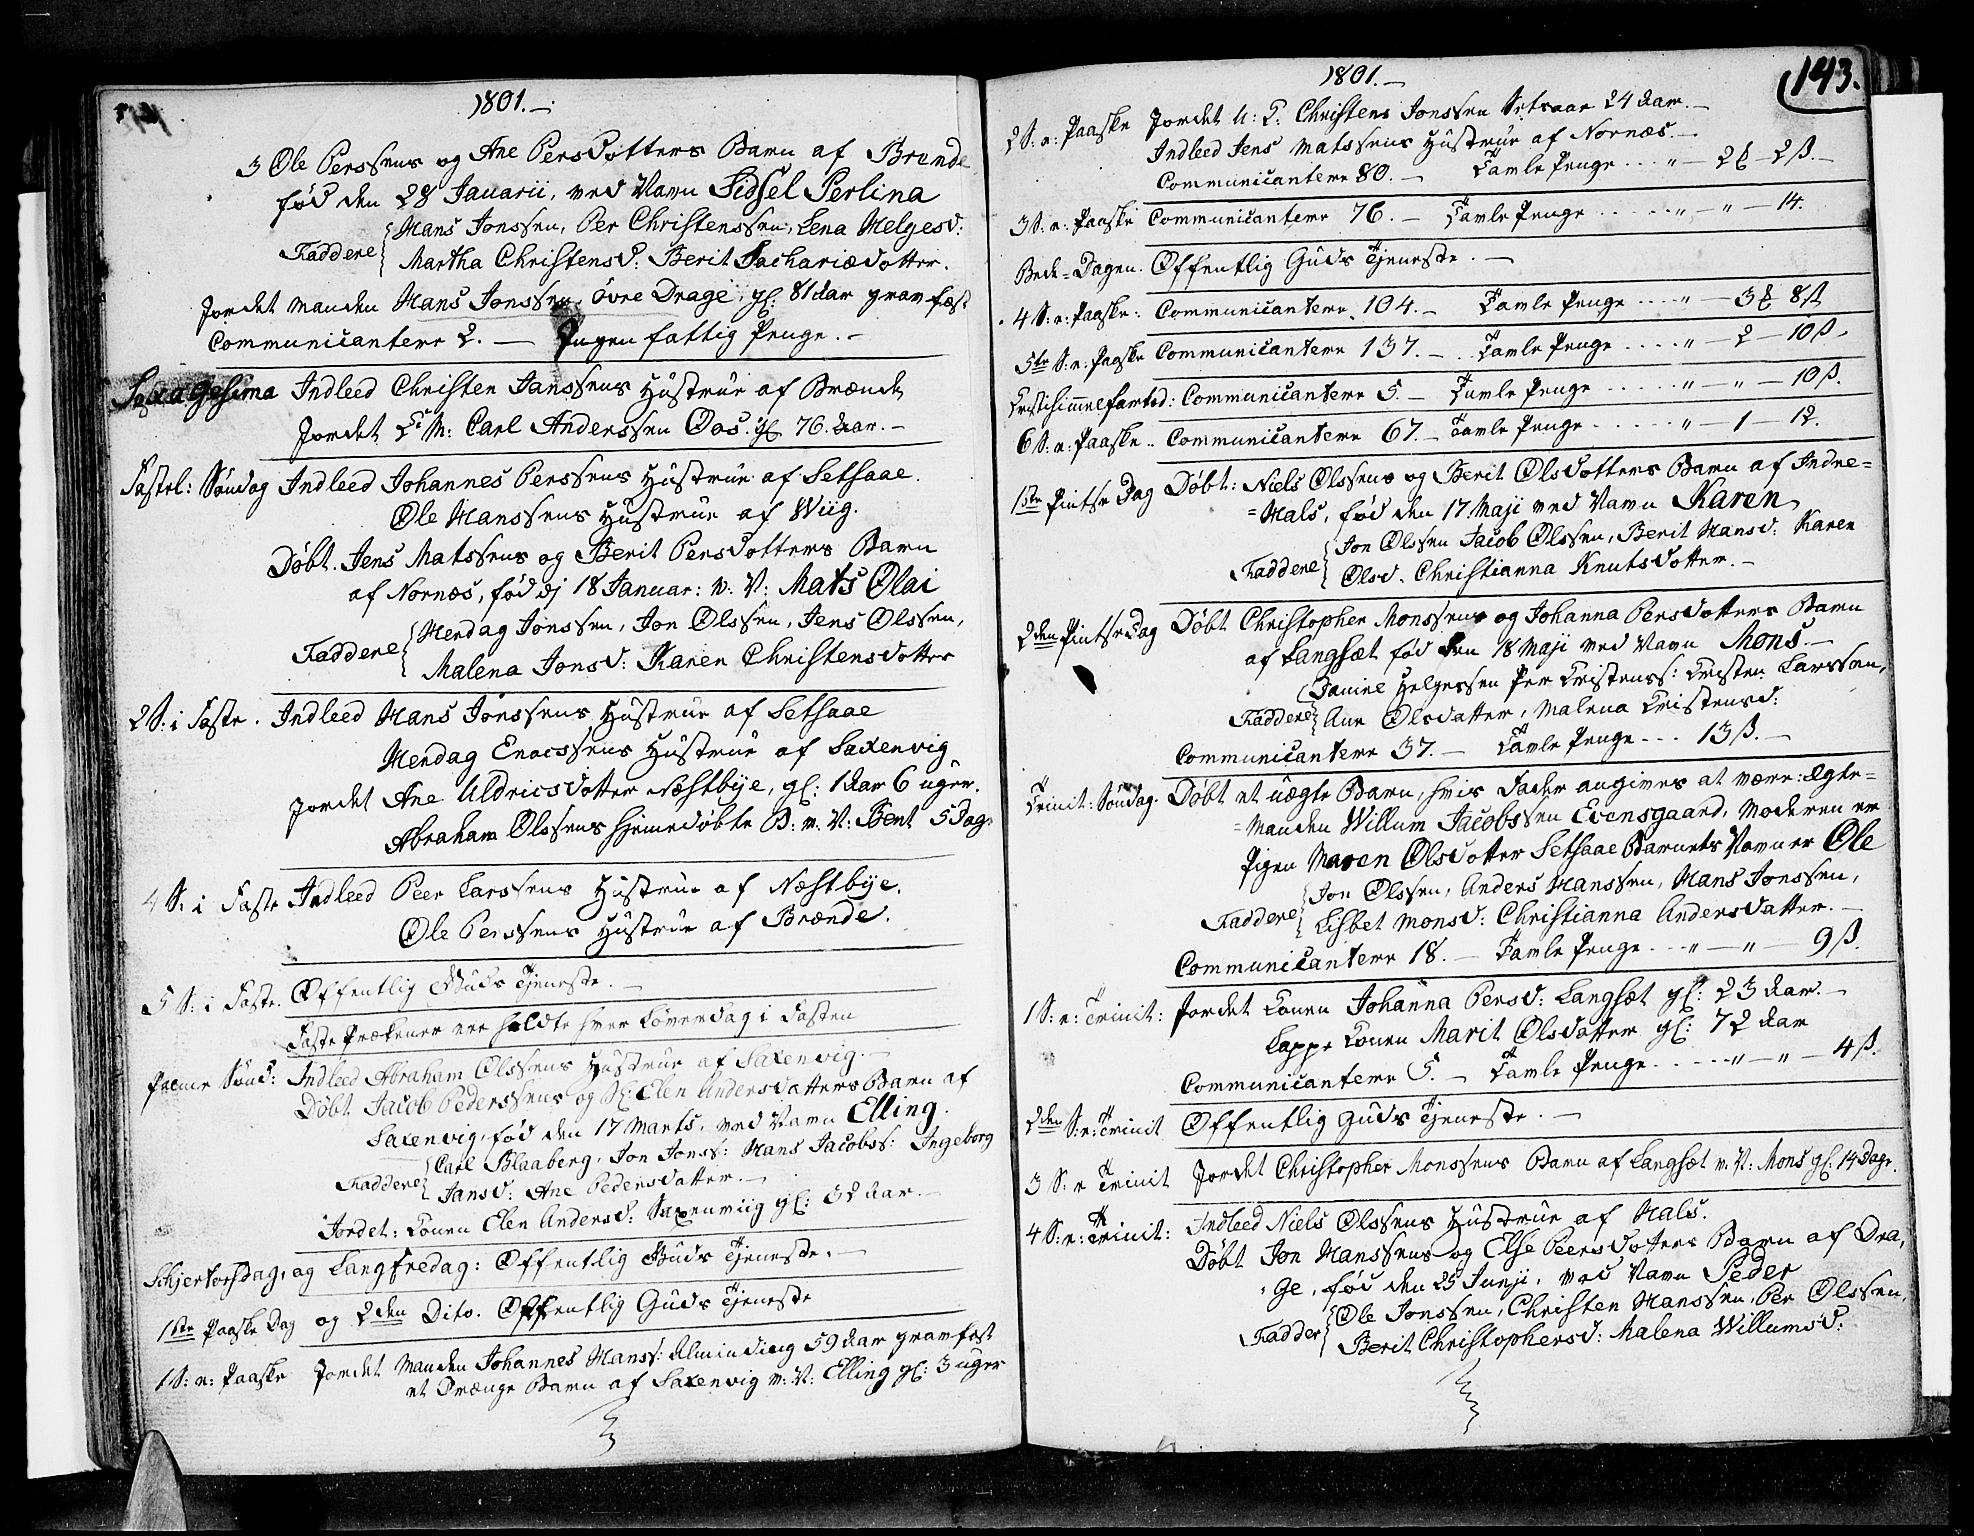 1801.
3 Ole Perssens og Ane Persdotters Barn af Brende
fød den 28 Januarii, ved Navn Sidsel Perlina
Faddere Hans Jonssen, Per Christenssen, Lena Helgesd:
Martha Christensd: Berit Sachariædotter.
Jordet Manden Hans Jonssen øvre Drage, gl: 81 Aar gravfæst
Communicantere 2. — Ingen fattig Penge. —
Sexagesima Indleed Christen Janssens Hustrue af Brænde
Jordet Carl Anderssen Oos. gl 76. Aar. —
Fastel: Søndag Indleed Johannes Perssens Hustrue af Setsaae.
Ole Hanssens Hustrue af Wiig.
Døbt. Jens Matssens og Berit Persdotters Barn
af Nornæs, fød dj 18 Januar: v. N: Mats Olai
Faddere Herdag Jonssen, Jon Olssen, Jens Olssen,
Malena Jonsd: Karen Christensdotter
2 S: i Faste. Indleed Hans Jonssens Hustrue af Setsaae
Herdag Enocssens Hustrue af Saxenvig
Jordet Ane Uldricsdotter Næstbye, gl: 1 Aar 6 uger.
Abraham Olssens hjemedøbte B: v. N: Bent 5 Dage
4 S: i Faste Indleed Peer Larssens Hustrue af Næstbye.
Ole Perssens Hustrue af Brænde.
5 S: i Faste. Offentlig Guds Tjeneste. —
Faste Prækener ere holdte hver Løverdag i Fasten
Palme Sønd: Indleed Abraham Olssens Hustrue af Saxenvig. —
Døbt. Jacob Pederssens og Sl: Elen Andersdatters Barn af
Saxenvig, fød den 17 Marts, ved Navn Elling.
Faddere Carl Blaaberg, Jon Jonss: Hans Jacobss: Ingeborg
Jansd: Ane Pedersdatter. —
Jordet: Konen Elen Andersd: Saxenviig gl: 32 Aar. —
Schjertorsdag, og Langfredag: Offentlig Guds Tjeneste. —
1ste Paaske Dag og 2den Dito. Offentlig Guds Tjeneste
1 S: e: Paaske Jordet Manden Johannes Hanss: Alminding 59 Aar gravfæst
et Drænge Barn af Saxenvig v: N: Elling gl: 3 uger
143.
1801. —
2 S: e: Paaske Jordet U: K: Christens Jonssen Setsaae 24 Aar. —
Indleed Jens Matssens Hustrue af Nornæs. —
Communicantere 80. — Tavle Penge .... " — 2 — 2 ß. —
3 S: e: Paaske Communicantere 76. — Tavle Penge ...... " — " — 14.
Bede-Dagen. Offentlig Guds Tjeneste. —
4 S: e: Paaske: Communicantere 104. — Tavle Penge .... " — 3 8 ß
5te S: e: Paaske Communicantere 137. — Tavle Penge .... " — 2 — 10 ß.
Cristi himmelfartsd: Communicantere 5. — Tavle Penge ..... " — " — 10 ß.
6 S: e: Paaske.. Communicantere 67. — Tavle Penge ...... " — 1 — 12.
1ste Pintse Dag Døbt: Niels Olssens og Berit Olsdotters Barn af Indre=
=Hals, fød den 17. Maji ved Navn Karen
Faddere Jon Olssen Jacob Olssen, Berit Hansd: Karen
Olsd. Christianna Knutsdotter. —
2den Pintse Dag Døbt Christopher Monssens og Johanna Persdotters Barn
af Langsæt fød den 18 Maji ved Navn Mons —
Faddere Daniel Helgessen Per Cristenss: Cristen Larssen,
Ane Olsdatter, Malena Cristensd:
Communicantere 37. — Tavle Penge ... 13 ß. —
Trinit: Søndag. Døbt et uægte Barn, hvis Fader angives at være: Ægte=
=Manden Willum Jacobssen Evensgaard, Moderen er
Pigen Maren Olsdotter Setsaae Barnets Navn er Ole
Faddere Jon Olssen, Anders Hanssen, Hans Jonssen,
Lisbet Monsd: Christianna Andersdatter. —
Communicantere 18. — Tavle Penge .... " — " — 9 ß.
1 S: e: Trinit: Jordet Konen Johanna Persd: Langsæt gl: 23 Aar. —
Lappe Konen Marit Olsdatter gl: 72 Aar
Communicantere 5. — Tavle Penge ..... " — " — 4 ß.
2den S: e: Trinit Offentlig Guds Tjeneste. —
3 S: e Trinit Jordet Christopher Monssens Barn af Langsæt v: N: Mons gl: 14 Dage.
4 S: e: Trinit: Indleed Niels Olssens Hustrue af Hals.
Døbt Jon Hanssens og Else Peersdotters Barn af Dra,
ge, fød den 25 Junji, ved Navn Peder
Fadder Ole Jonssen, Christen Hanssen, Per Olssen,
Berit Christophersd: Malena Willumsd: